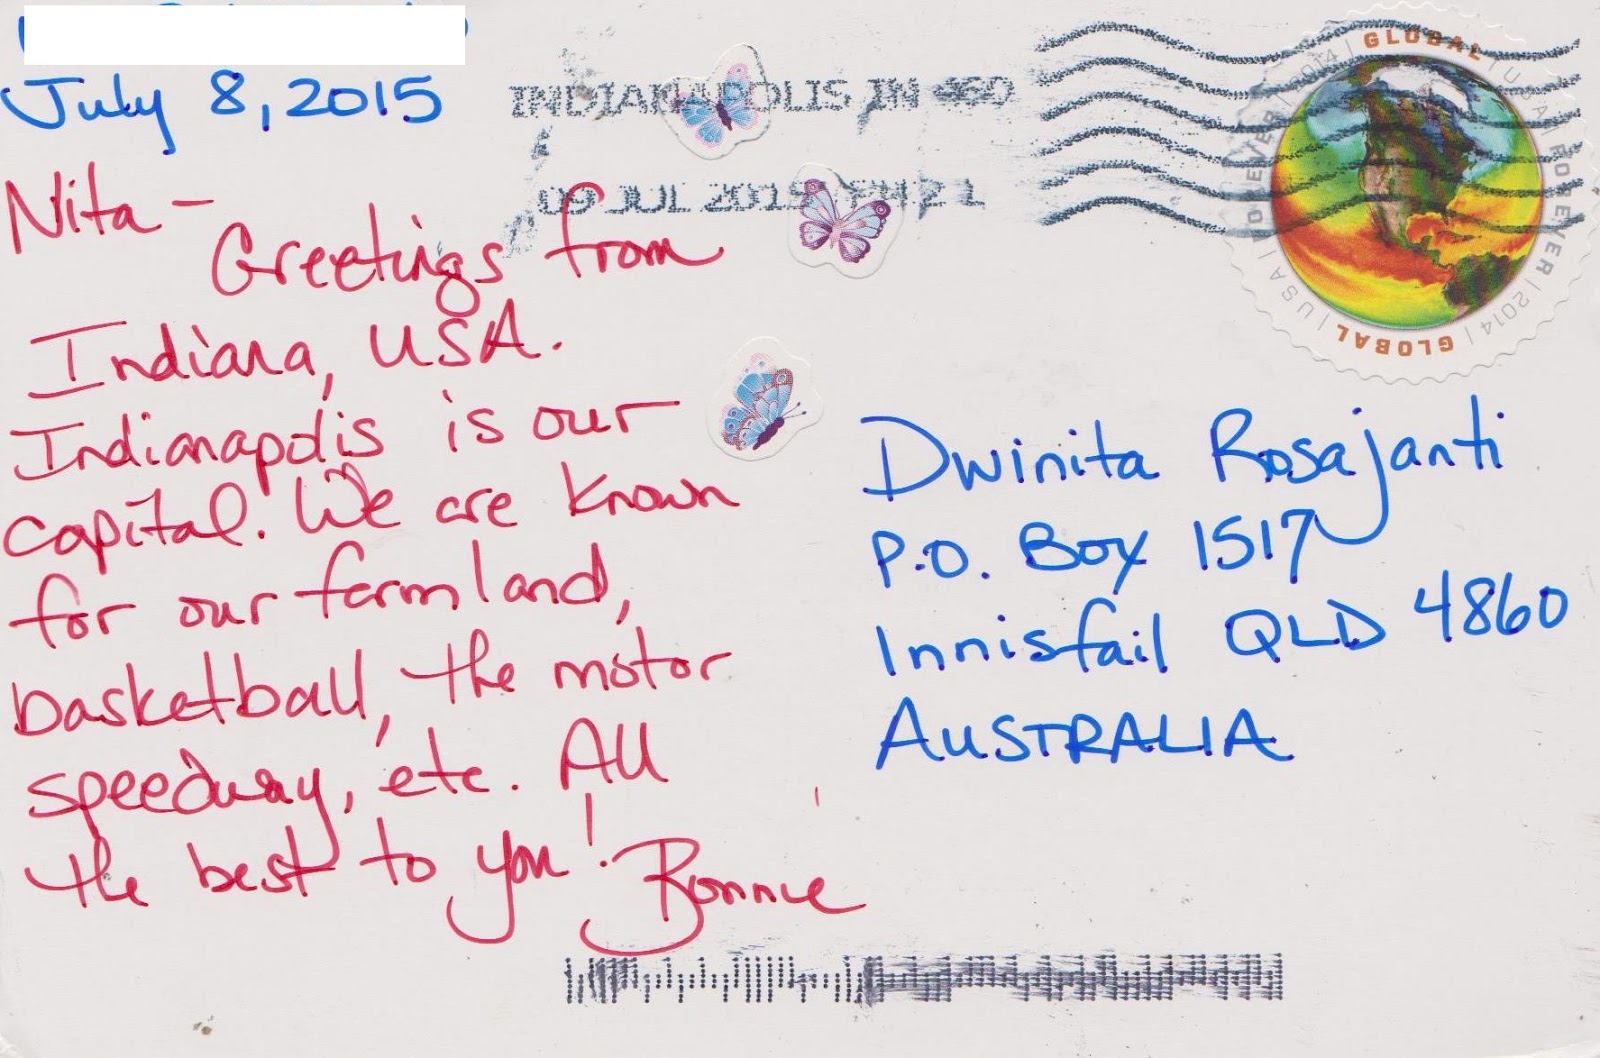 July 8, 2015
Nita -
Greetings from
Indiana, USA.
Indianapolis is our
capital. We are known
for our farmland,
basketball, the motor
speedway, etc. All
the best to you!
Bonnie
INDIANAPOLIS IN 460
09 JUL 2015 PM 2 L
GLOBAL | USA | FOREVER | 2014 | GLOBAL | USA | FOREVER | 2014 |
Dwinita Rosajanti
P.O. Box 1517
Innisfail QLD 4860
AUSTRALIA